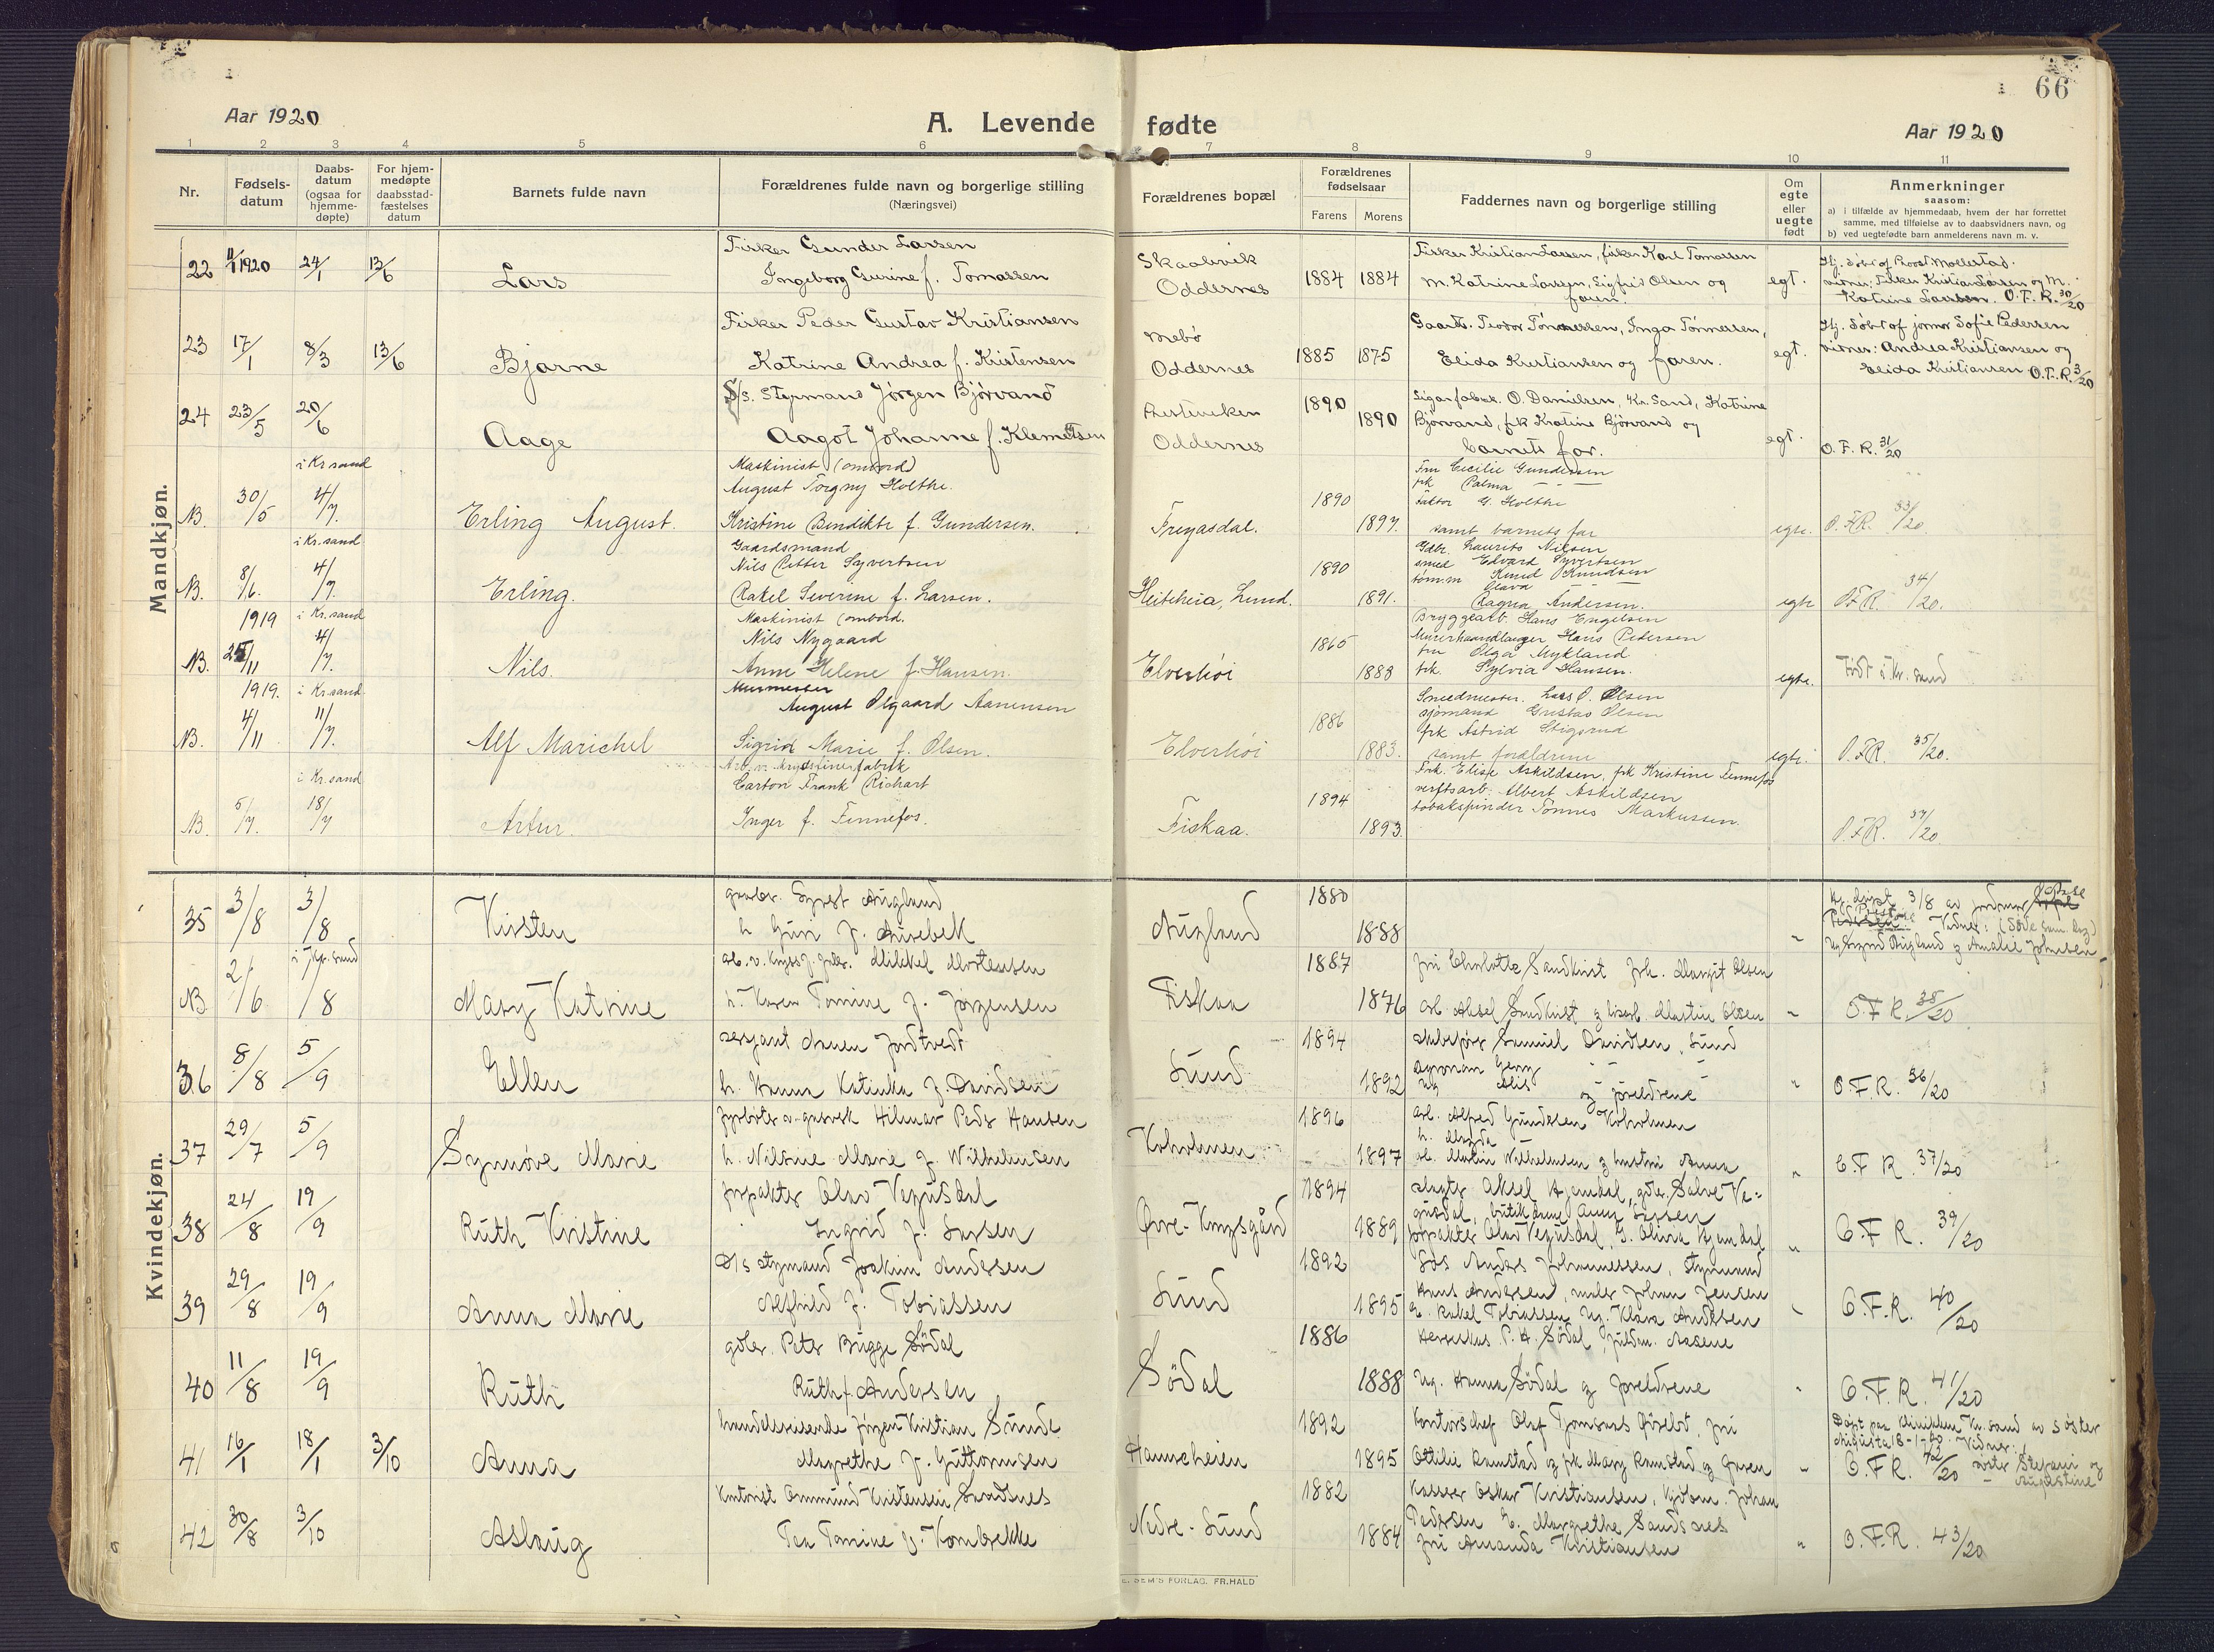 66
Aar 1920
A. Levende fødte
Aar 1920
1 2 3 4 5 6 7 8 9 10 11
Nr.
Fødsels-
datum
Daabs-
datum
(ogsaa for
hjemme-
døpte)
For hjem-
medøpte
daabsstad-
fæstelses
datum
Barnets fulde navn
Forældrenes fulde navn og borgerlige stilling
(Næringsvei)
Forældrenes bopæl
Forældrenes
fødselsaar
Farens Morens
Faddernes navn og borgerlige stilling
Om
egte
eller
uegte
født
Anmerkninger
saasom:
a) i tilfælde av hjemmedaab, hvem der har forrettet
samme, med tilføielse av to daabsvidners navn, og
b) ved uegtefødte barn anmelderens navn m. v.
Mandkjøn.
22 1920 24/1 13/6 Lars
Fisker Gunder Larsen
Ingeborg Gurine f. Tomassen
Skaalevik
Oddernes
1884 1884
Fisker Kristian Larsen, fisker Karl Tomassen
M. Katrine Larsen, Sigfrid Olsen og
faren.
egt.
Hj. døbt af Provst Mollestad.
vidner: Fisker Kristian Larsen og M.
Katrine Larsen. O.F.R. 30/20
23 17/1 8/3 13/6 Bjarne
Fisker Peder Gustav Kristiansen
Katrine Andrea f. Kristensen
Mebø
Oddernes
1885 1875
Gaardb. Teodor Tønnessen, Inga Tønnessen,
Elida Kristiansen og faren.
egt.
Hj. døbt af jormor Sofie Pedersen
vidner: Andrea Kristiansen og
Elida Kristiansen O.F.R. 3/20
24 23/5 20/6 Aage
S/s. Styrmand Jørgen Bjørvand
Aagot Johanne f. Klemetsen
Oddernes
1890 1890
Sigarfabrik. O. Danielsen, Kr. Sand, Katrine
Bjørvand, frk Kratine Bjørvand og
barnets far.
egt.
O.F.R. 31/20
NB. 30/5 i Kr.sand 4/7. Erling August.
Maskinist (ombord)
August Torgny Holthe.
Kristine Bendikte f. Gundersen.
Fregasdal.
1890 1897.
Fru Cecilie Gundersen
frk Palma — —
faktor G. Holthe
samt barnets far
egte.
O.F.R. 33/20
NB. 8/6. i Kr.sand 4/7. Erling.
Gaardsmand
Nils Petter Syvertsen
Rakel Severine f. Larsen.
Heiteheia, Lund.
1890 1891.
Gdbr. Laurits Nilsen
smed Edvard Syvertsen
tøm.m Knud Knudsen
Clara —
Ragna Andersen.
egte
O.F.R. 34/20.
NB. 1919 25/11 i Kr.sand 4/7. Nils.
Maskinist (ombord.
Nils Nygaard
Anne Helene f. Hansen.
Elverhöi
1865 1883
Bryggearb. Hans Engelsen
Murerhaandlanger Hans Pedersen
fru Olga Mykland
frk. Sylvia Hansen.
egte.
Født i Kr. sand
NB. 1919. 4/11 i Kr.sand 11/7. Alf Marichel
Murmester
August Olgaard Aanensen
Sigrid Marie f. Olsen.
Elverhöi
1886 1883.
Smedmester. Lars O. Olsen
sjömand Gustav Olsen
frk Astrid Stigsrud
samt forældrene
egte.
O.F.R. 35/20.
NB. 5/7. i Kr.sand 18/7 Artur.
Carton Frank Richart
Inger f. Finnefos.
Fiskaa.
1894 1893.
Frk. Elise Askildsen, frk Kristine Finnefos
verftsarb. Albert Askildsen
tobakspinder Tönnes Markussen.
O.F.R. 37/20
Kvindekjøn.
35 3/8 3/8 Kirsten
gaardbr. Syvert Augland
h. Guri f. Aurebekk
Augland
1880 1888
Hj.døpt 3/8 av jordmor
NB 2/6 i Kr.sand 1/8 Mary Katrine
arb. v. Mikkel Mortensen
h. Karen Tomine f. Jørgensen
Fiskaa
1887 1876
fru Charlotte Sandkvist frk. Margit Olsen
arb. Aksel Sandkvist g Martin Olsen
O.F.R. 35/20
36 8/8 5/9 Ellen
sersjant Anen Jordtvedt
h. Hanna Katinka f. Davidsen
Lund
1894 1892
Samuel Davidsen, Lund
Georg — —
og foreldrene
O.F.R. 36/20
37 29/7 5/9 Synnøve Marie
fyrbøter v. gasverk Hilmar Peds Hansen
h. Nilsine Marie f. Wilhelmsen
Kolsholmen
1896 1897
arb. Alfred Gundersen Kolsholmen
h. Magda —
arb. Martin Wilhelmsen g hustru Anna
O.F.R. 37/20
38 24/8 19/9 Ruth Kristine
forpakter Olav Vegusdal
Ingrid f. Larsen
Øvre-Kongsgård
1894 1889
slagter Aksel Hjemdal, gdbr. Salve Ve=
gusdal, butikdame Anny Larsen
forpakter Olav Vegusdal, G. Olivia Hjemdal
O.F.R. 39/20
39 29/8 19/9 Anna Marie
D/s styrmand Joakim Andersen
Alfhild f. Tobiassen
Lund
1892 1895
Løs Anders Johannessen, styrmand
Knut Andersen, maler Johan Jensen
G. Rakel Tobiassen Ug. Klara Andersen
O.F.R. 40/20
40 11/8 19/9 Ruth
gdbr. Peter Bugge Södal
Ruth f. Andersen
Södal
1886 1888
P. H. Södal, Aasene
Ug. Hanna Södal g foreldrene
O.F.R. 41/20
41 16/1 18/1 3/10 Anna
handelsreisende Jørgen Kristian Sunde
Margrethe f. Guttormsen
Hanneheien
1892 1895
Kontorchef Olaf Tomsens fru
Ottilie Ramstad og frk Mary Ramstad g faren
Døpt paa klinikken Kr.sand av søster
Augusta 18-1-20. Vidner:
O.F.R. 42/20 søster Stefani og
— Augustine
42 30/8 3/10 Aslaug
Kontorist Ommund Kristensen Sandsnes
Tea Tomine f. Kornbrekke
Nedre-Lund
1882 1884
Kasserer Oskar Kristiansen, Johan
Pedersen G. Margrethe Sandsnes
fru Amanda Kristiansen
O.F.R. 43/20
E. SEM'S FORLAG. FR.HALD